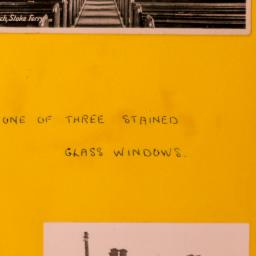 ch, Stoke Ferry
ONE OF THREE STAINED
GLASS WINDOWS.